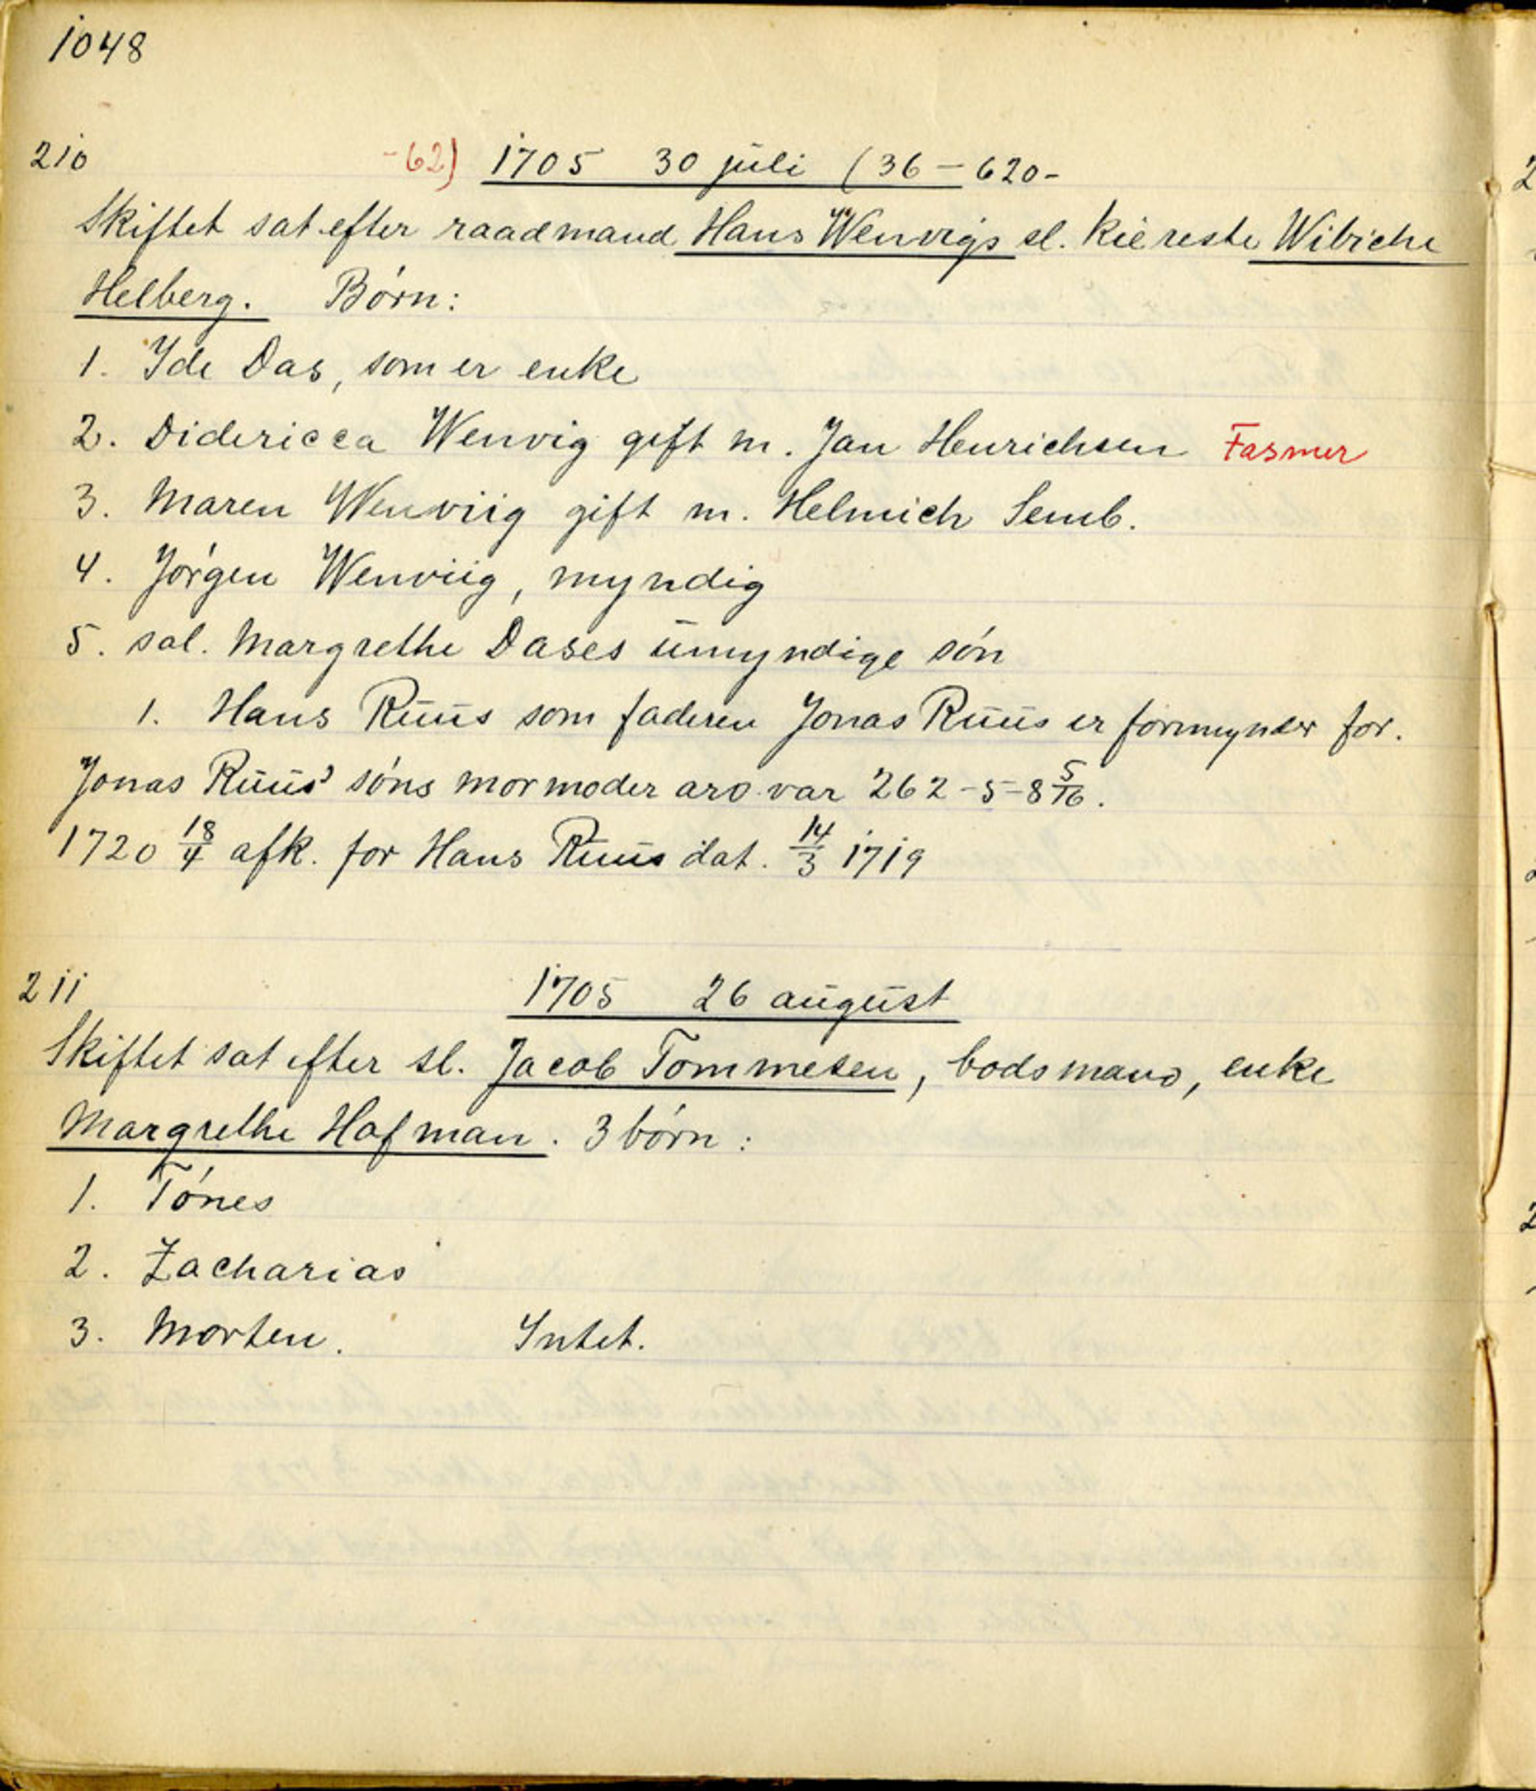 1048
210 -62) 1705 30 juli (36-620-
Skiftet sat efter raadmand Hans Wenvigs sl. Kiereste Wibiche
Helberg. Børn:
1. Yde Das, som er enke
2. Didericca Wenvig gift m. Jan Henrichsen Fasmer
3. Maren Wenviig gift m. Helmich Semb.
4. Jørgen Wenviig, myndig
5. sal. Margrethe Dases umyndige søn
1. Hans Ruus som faderen Jonas Ruus er formynder for.
Jonas Ruus' søns mormoder arv var 262-5-8 5/16.
1720 18/4 afk. for Hans Ruus dat. 14/3 1719
211 1705 26 august
Skiftet sat efter sl. Jacob Tommesen, bodsmand, enke
Margrethe Hofman. 3 børn:
1. Tønes
2. Zacharias
3. Morten. Intet.